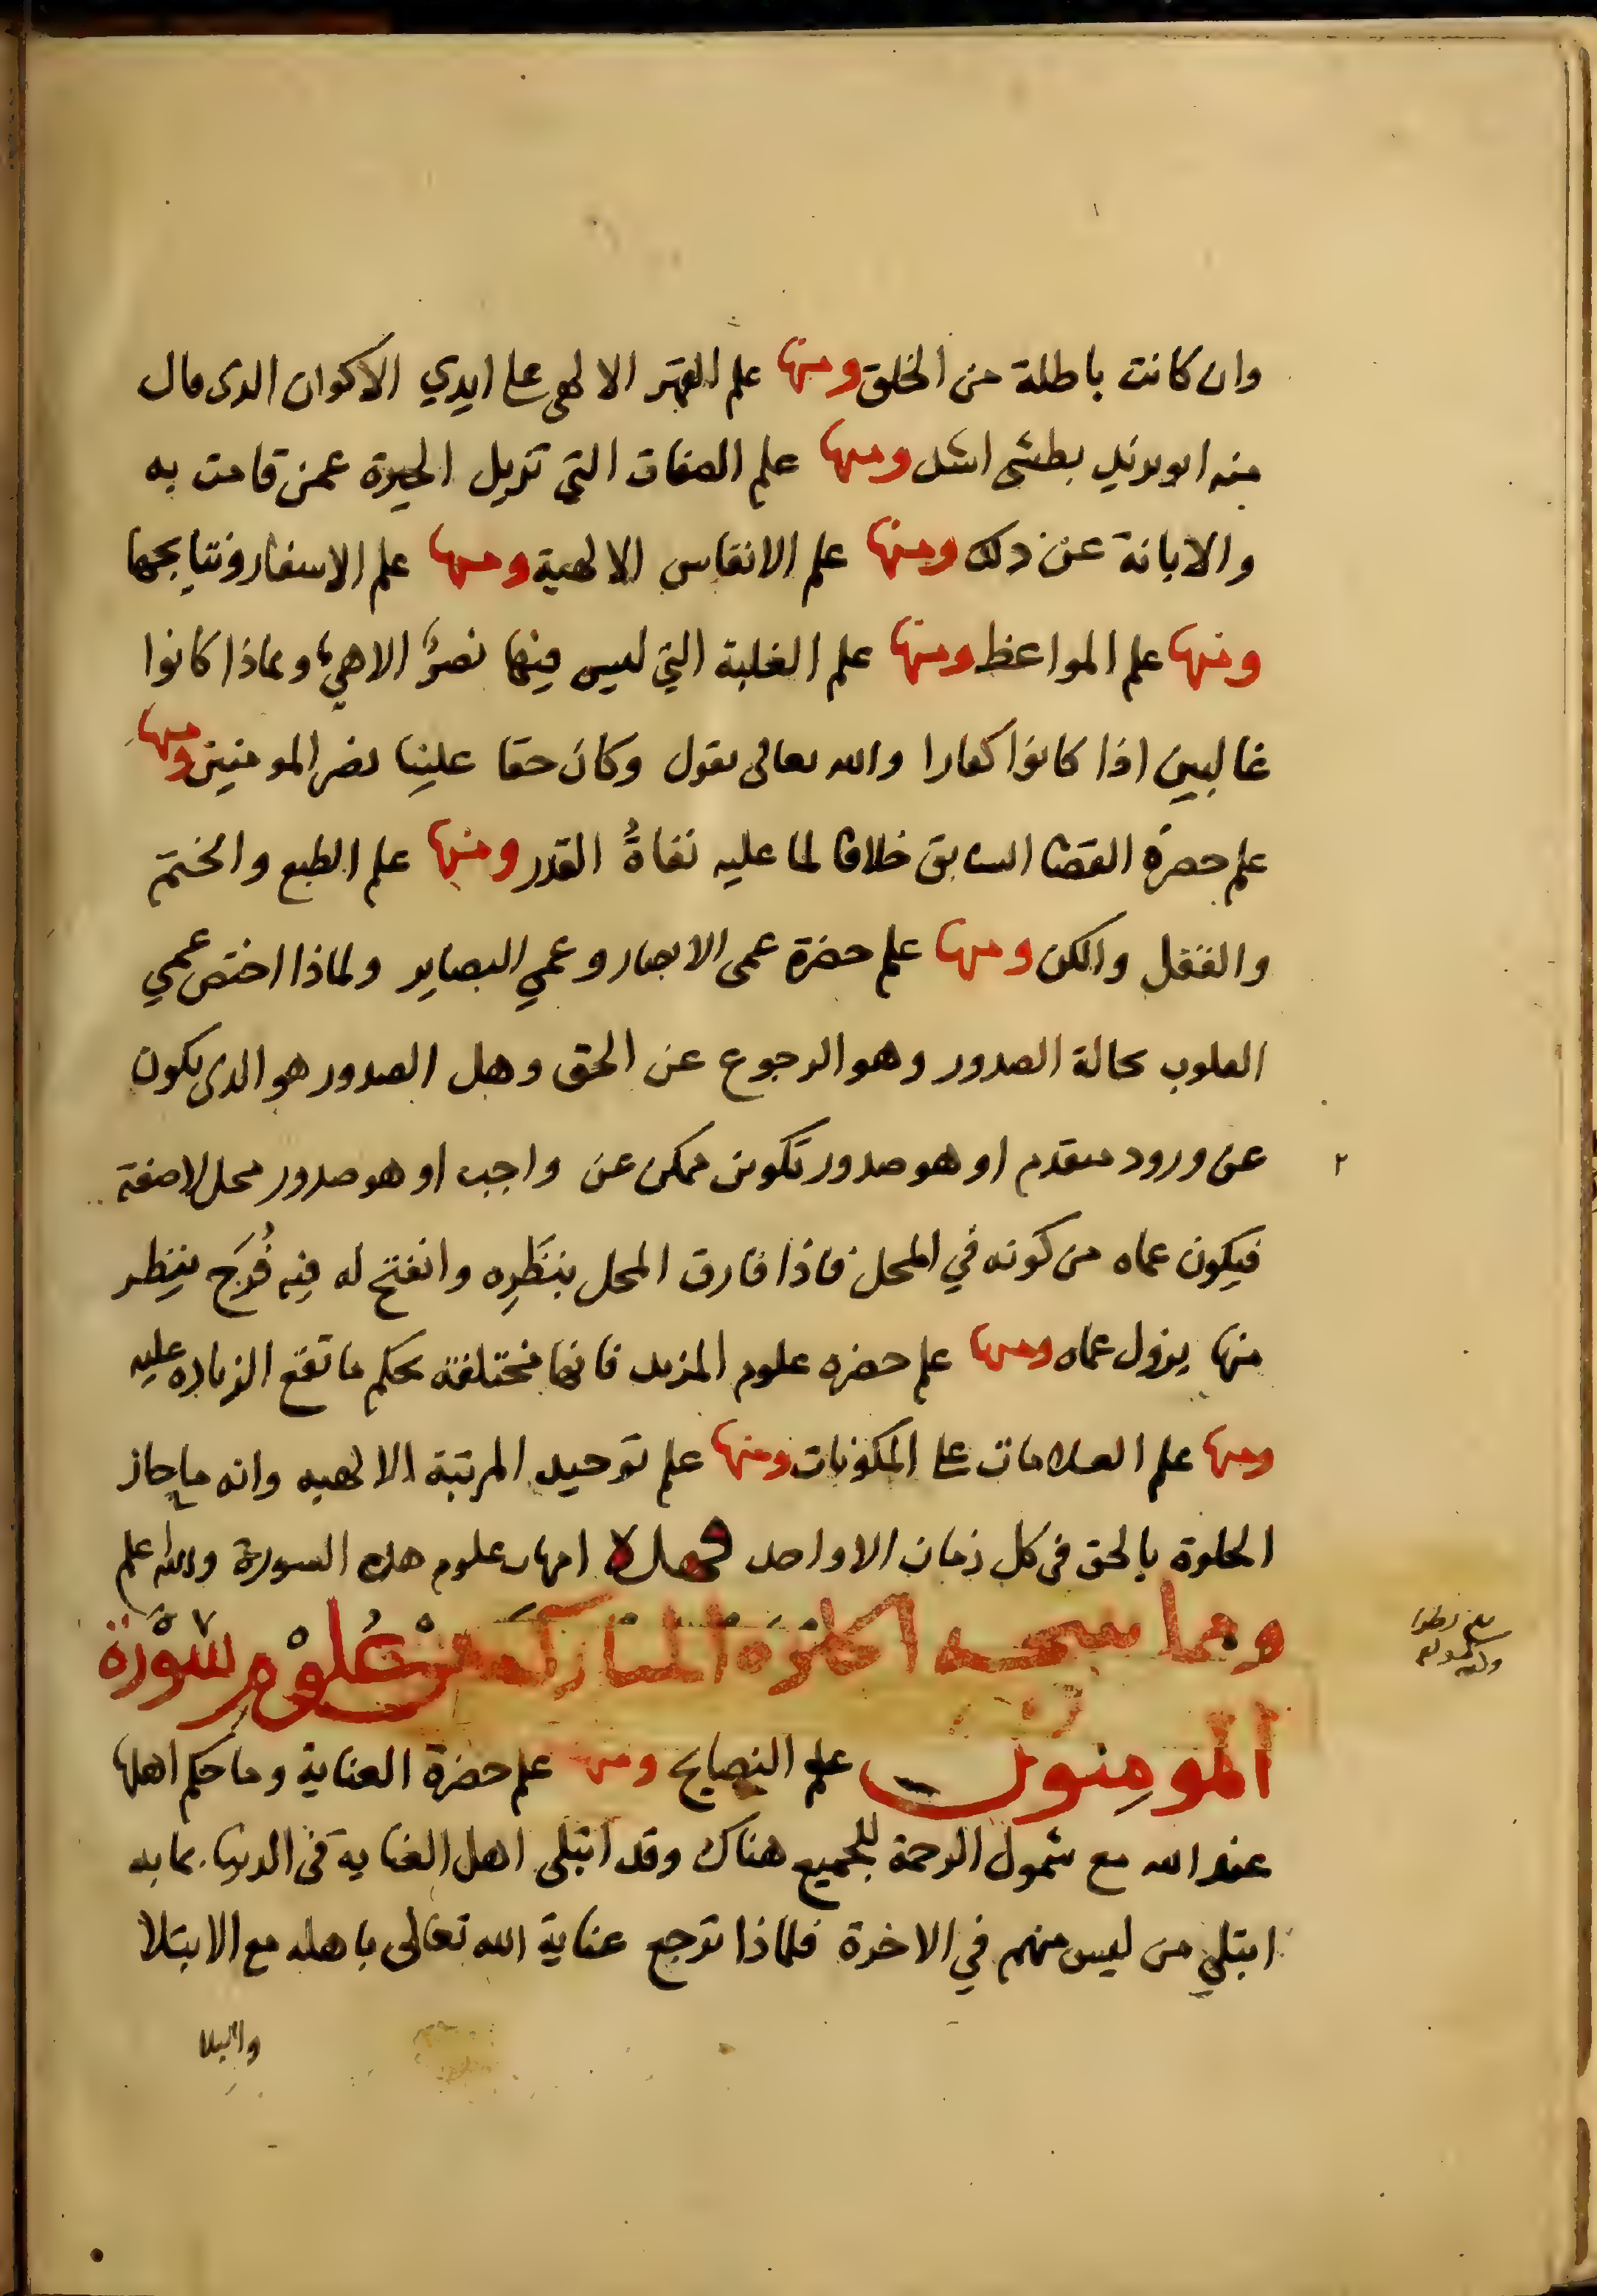 وان كانت باطلة من الخلق ومنها علم القهر الالهى على ايدي الاكوان الدى قال
منه ابو يزيد بطشى اشد ومنها علم الصفات التي تزيل الحيرة عمن قامت به
والابانة عن ذلك ومنها علم الانفاس الالهية ومنها علم الاسفار ونتايجها
ومنها علم المواعظ ومنها علم الغلبة التي ليس فيها نصرٌ الاهي ولماذا كانوا
غالبين اذا كانوا كفارا والله تعالى يقول وكان حقا علينا نصر المومنين ومنها
علم حضرة القضا السابق خلافا لما عليه نفاةُ القدر ومنها علم الطبع والختم
والقفل والكن ومنها علم حضرة عمى الابصار وعمي البصاير ولماذا اختص عمي
القلوب بحالة الصدور وهو الرجوع عن الحق وهل الصدور هو الدى يكون
عن ورود متقدم او هو صدور تكوين ممكن عن واجب او هو صدور محل لاصفة
فيكون عماه من كونه في المحل فاذا فارق المحل بنَظَرِه وانفتح له فيه فُرَج ينظر
منها يزول عماه ومنها علم حضره علوم المزيد فانها مختلفة بحكم ما تقع الزياده عليه
ومنها علم العلامات على المكونات ومنها علم توحيد المرتبة الالهيه وانه ما جاز
الخلوة بالحق فى كل زمان الا واحد فهذه امهات علوم هذه السورة والله اعلم
ومما الحضرة المباركه من علوم سورة
المومنون علم النصايح ومنها علم حضرة العناية وما حكم اهلها
عند الله مع شمول الرحمة للجميع هناك وقد ابتلى اهل العناية فى الدنيا بما به
ابتلي من ليس منهم في الاخرة فلماذا ترجع عناية الله تعالى باهله مع الابتلا
والبلا